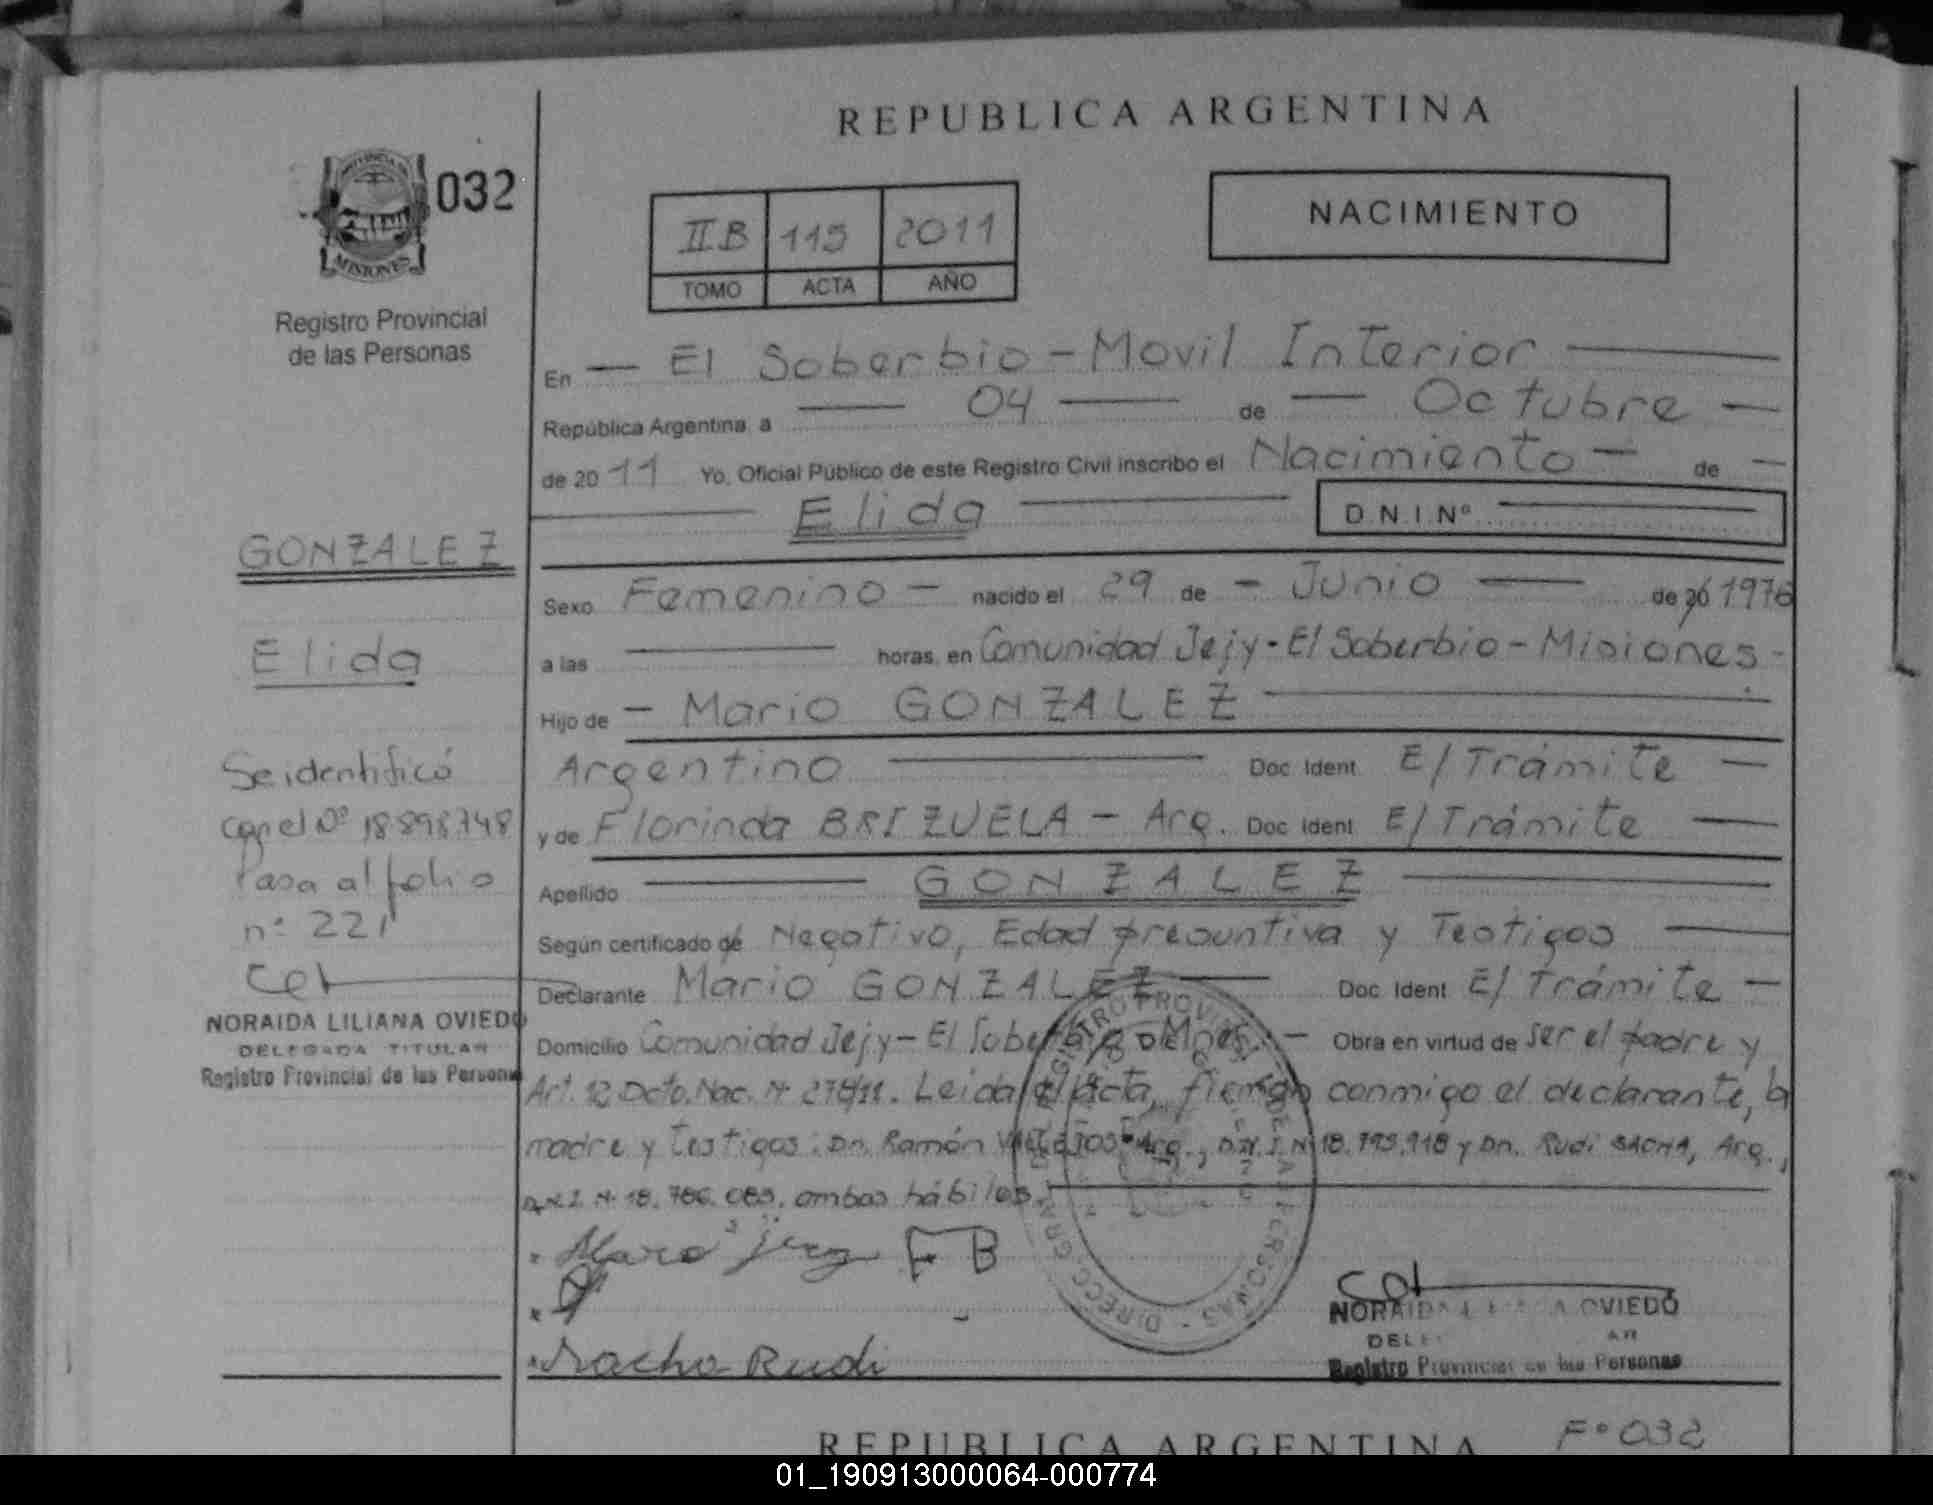 REPUBLICA ARGENTINA
PROVINCIA DE
MISIONES
032
Registro Provincial
de las Personas
II B 115 2011
TOMO ACTA AÑO
NACIMIENTO
En — El Soberbio - Movil Interior —
República Argentina, a — 04 — de — Octubre —
de 2011 Yo, Oficial Público de este Registro Civil inscribo el Nacimiento — de —
— Elida — D.N.I. Nº —
Sexo Femenino — nacido el 29 de — Junio — de 20 1976
a las — horas, en Comunidad Jejy - El Soberbio - Misiones -
Hijo de — Mario GONZALEZ —
Argentino — Doc. Ident. E/Trámite —
y de Florinda BRIZUELA — Arg. Doc. Ident. E/Trámite —
Apellido — GONZALEZ —
Según certificado de Negativo, Edad presuntiva y Testigos —
Declarante Mario GONZALEZ — Doc. Ident. E/Trámite —
Domicilio Comunidad Jejy - El Soberbio - Mnes. — Obra en virtud de ser el padre y
Art. 12 Dcto. Nac. Nº 278/11. Leida el acta, firman conmigo el declarante, la
madre y testigos: Dn. Ramón VALLEJOS - Arg., D.N.I. Nº 18.793.918 y Dn. Rudi SACHA, Arg.,
D.N.I. Nº 18.786.089, ambos hábiles. —
F B
Sacha Rudi
GONZALEZ
Elida
Se identificó
con el Nº 18898748
Pasa al folio
nº 221
NORAIDA LILIANA OVIEDO
DELEGADA TITULAR
Registro Provincial de las Personas
NORAIDA LILIANA OVIEDO
Registro Provincial de las Personas
REPUBLICA ARGENTINA
Fº 032
01_190913000064-000774